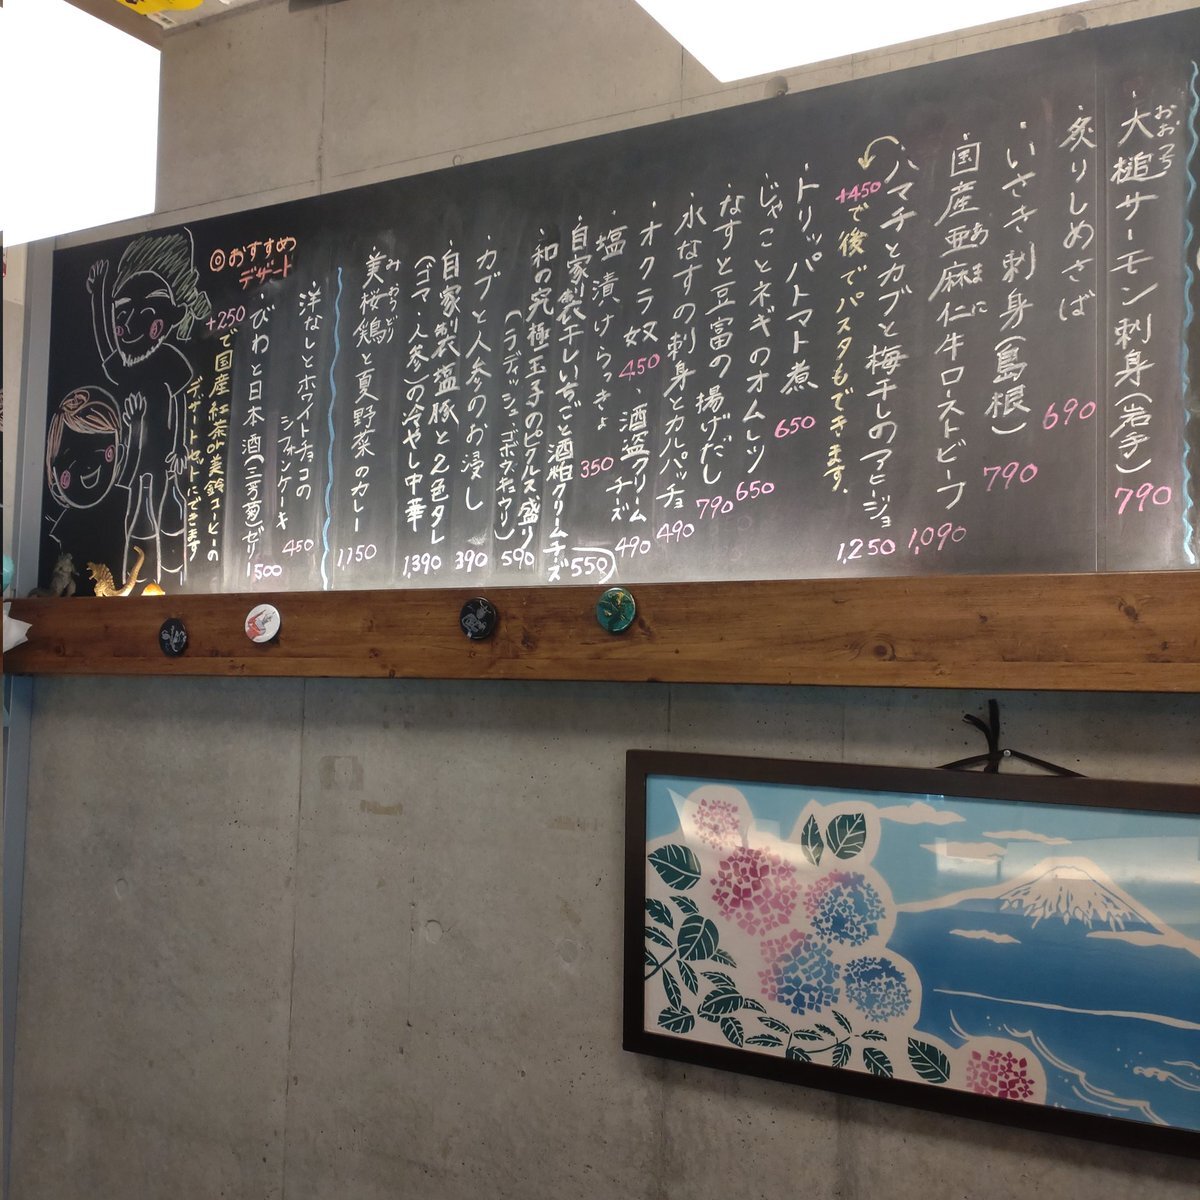 ・大槌サーモン刺身(岩手) 790
おおつち
・炙りしめさば 690
・いさき刺身(島根) 790
・国産亜麻仁牛ローストビーフ 1,090
あまに
・ハマチとカブと梅干しのアヒージョ 1,250
+450で後でパスタもできます。
・トリッパトマト煮 650
・じゃことネギのオムレツ 650
・なすと豆富の揚げだし 790
・水なすの刺身とカルパッチョ 490
・オクラ奴 450 ・酒盗クリームチーズ 490
・塩漬けらっきょ 350
・自家製干しいちごと酒粕クリームチーズ 550
・和の究極玉子のピクルス盛り
(ラディッシュ、ゴボウ、キュウリ) 590
・カブと人参のお浸し 390
・自家製塩豚と2色タレ
(ゴマ・人参)の冷やし中華 1,390
・美桜鶏と夏野菜のカレー 1,150
みおうどり
◎おすすめ
デザート
・洋なしとホワイトチョコの
シフォンケーキ 450
・びわと日本酒(三芳菊)ゼリー 500
+250で国産紅茶or美鈴コーヒーの
デザートセットにできます